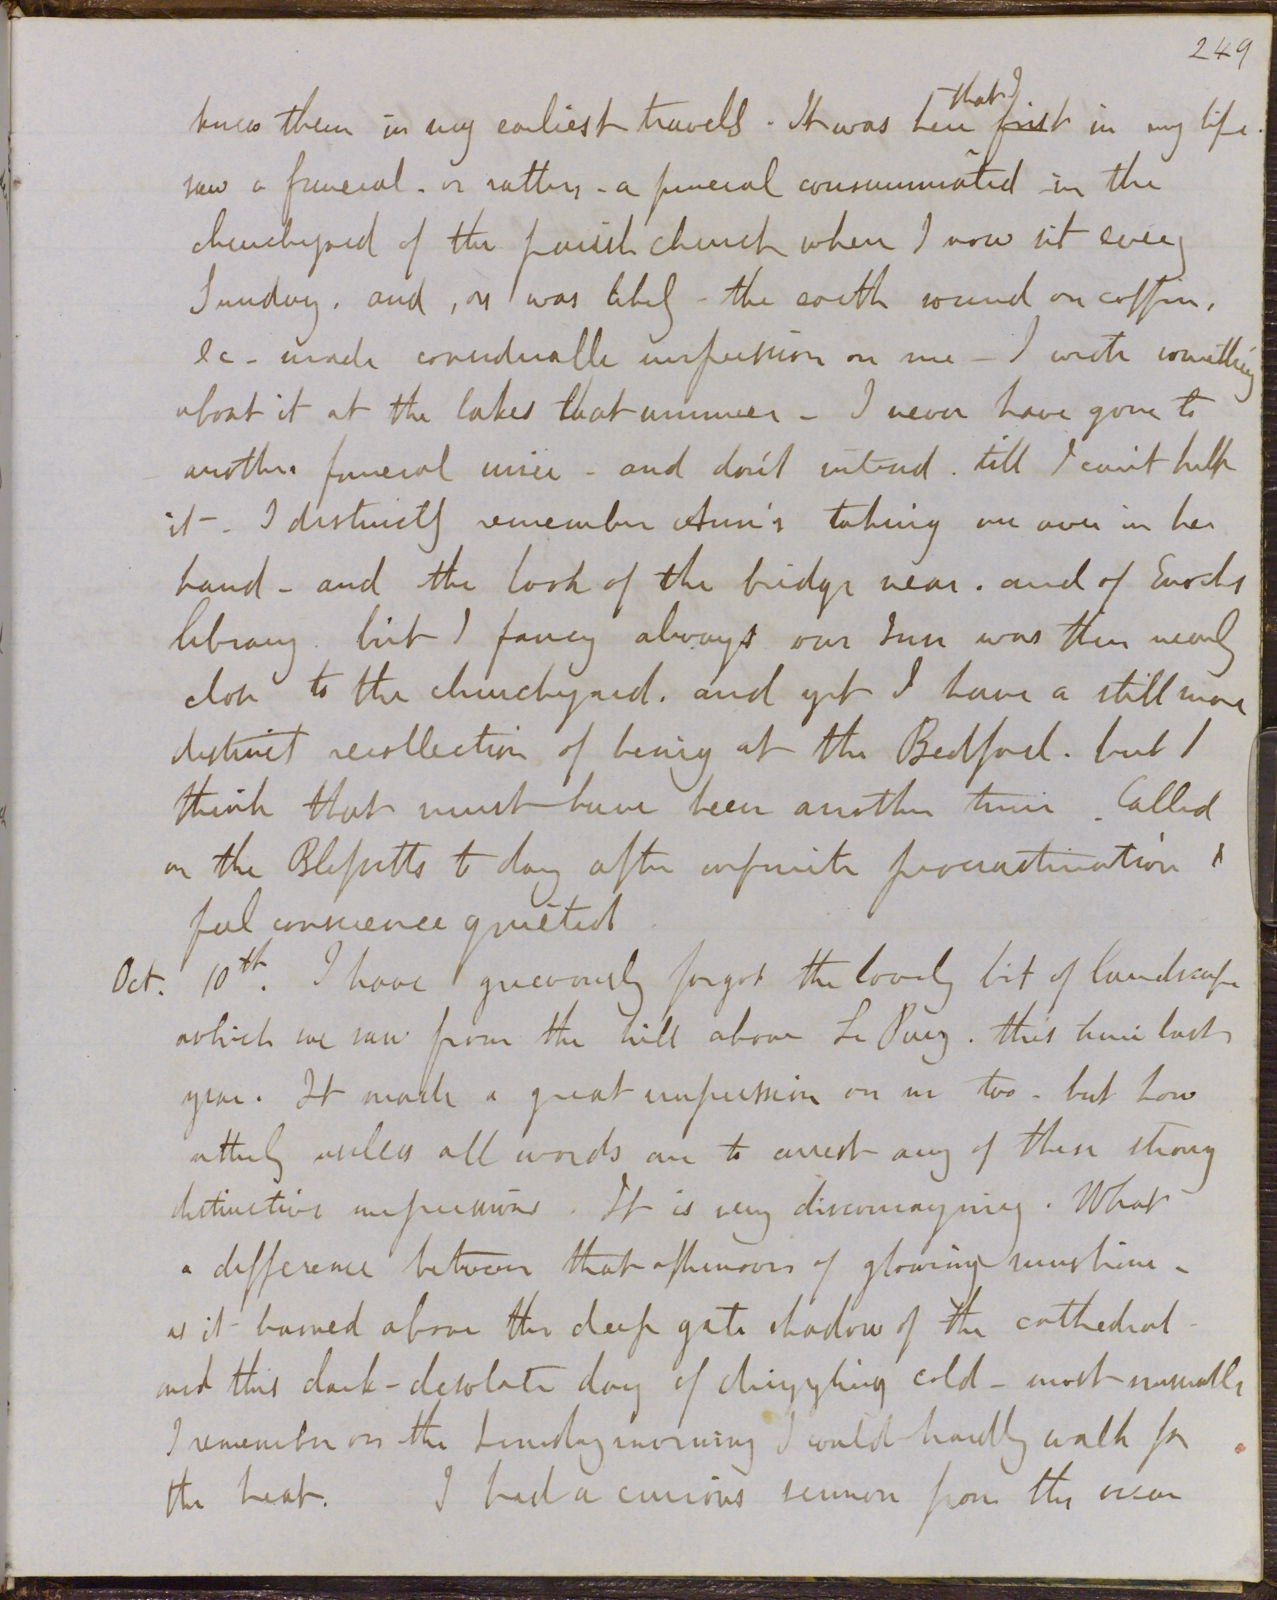 249
knew them in my earliest travels. It was here that I first in my life.
saw a funeral. or rather - a funeral consummated in the
churchyard of the parish church where I now sit every
Sunday. and, as was likely - the earth sound on coffin,
&c - made considerable impression on me - I wrote something
about it at the lakes that summer - I never have gone to
another funeral since - and don't intend. till I can't help
it - I distinctly remember Ann's taking me over in her
hand - and the look of the bridge near. and of
library. but I fancy always our Inn was then nearly
close to the churchyard. and yet I have a still more
distinct recollection of being at the Bedford. but I
think that must have been another time. Called
on the to day after infinite procrastination &
feel conscience quieted
Oct. 10th. I have grievously forgot the lovely bit of landscape
which we saw from the hill above Le Puy. this time last
year. It made a great impression on me too - but how
utterly useless all words are to arrest any of these strong
distinctive impressions. It is very discouraging. What
a difference between that afternoon of glowing sunshine -
as it burned above the deep gate shadow of the cathedral -
and this dark - desolate day of drizzling cold - most unusually
I remember on the Sunday morning I could hardly walk for
the heat. I had a curious sermon from the vicar